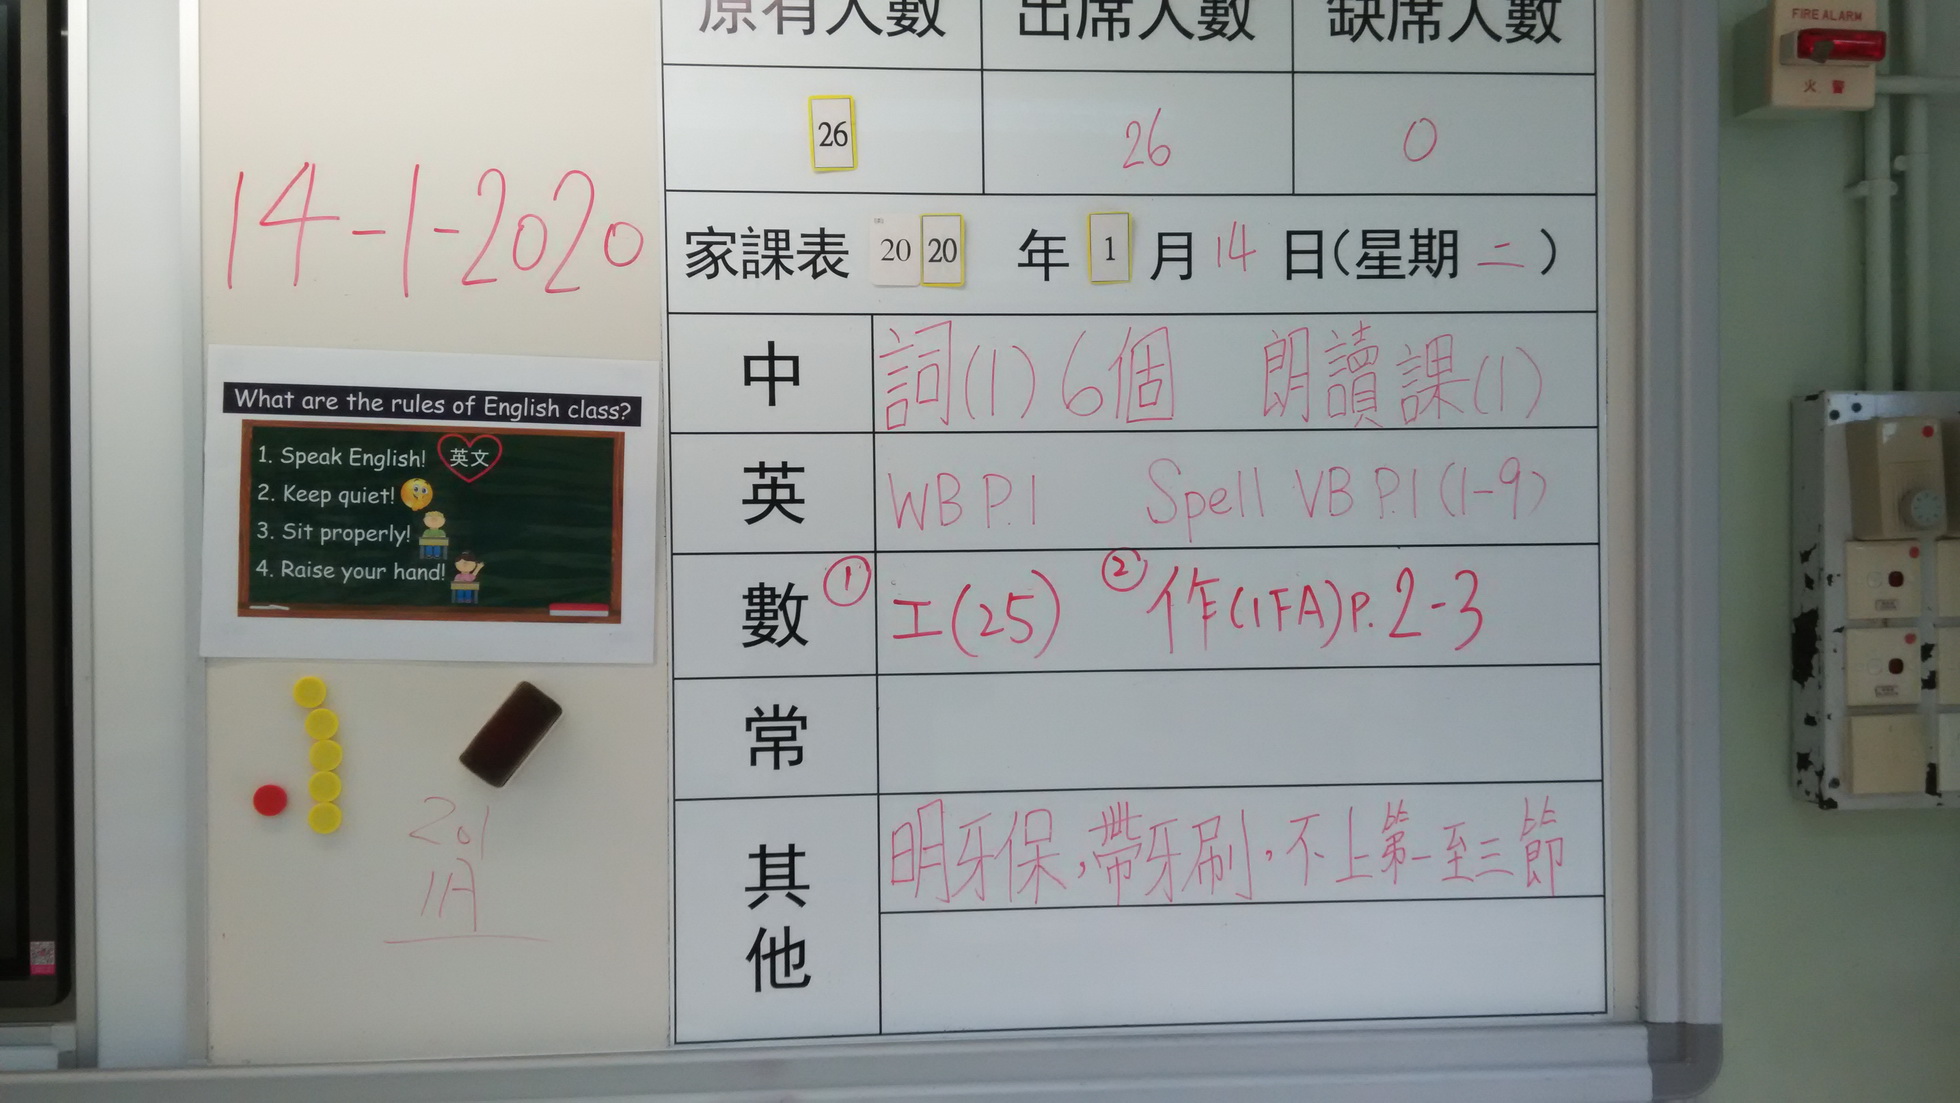 原有人數 出席人數 缺席人數
26 26 0
14-1-2020
家課表 2020 年 1 月 14 日(星期 二)
中 詞(1)6個 朗讀課(1)
英 WB P.1 Spell VB P.1(1-9)
數 ① 工(25) ② 作(1FA)P.2-3
常
其他 明牙保，帶牙刷，不上第一至三節
What are the rules of English class?
1. Speak English! 英文
2. Keep quiet!
3. Sit properly!
4. Raise your hand!
201
1A
FIRE ALARM
火警